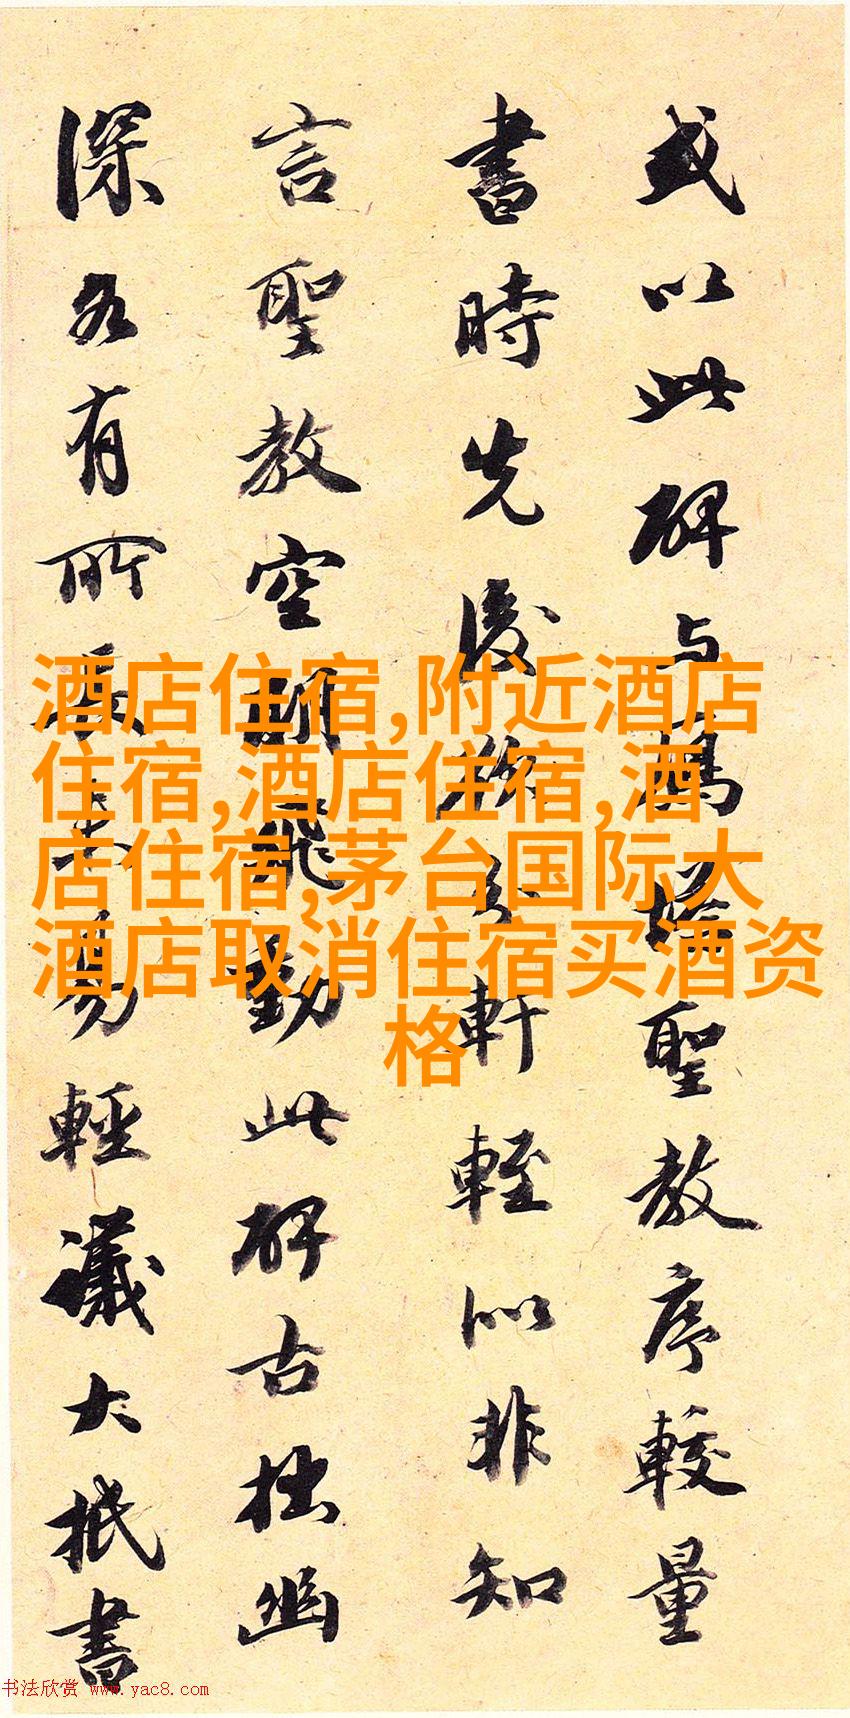 或以此碑与鴈塔聖教序較量
書時先後分軒輊似非知
言聖教空明飛動此碑古拙幽
深各有所長未易輕議大抵書
酒店住宿,附近酒店
住宿,酒店住宿,酒
店住宿,茅台国际大
酒店取消住宿买酒资
格
书法欣赏 www.yac8.com